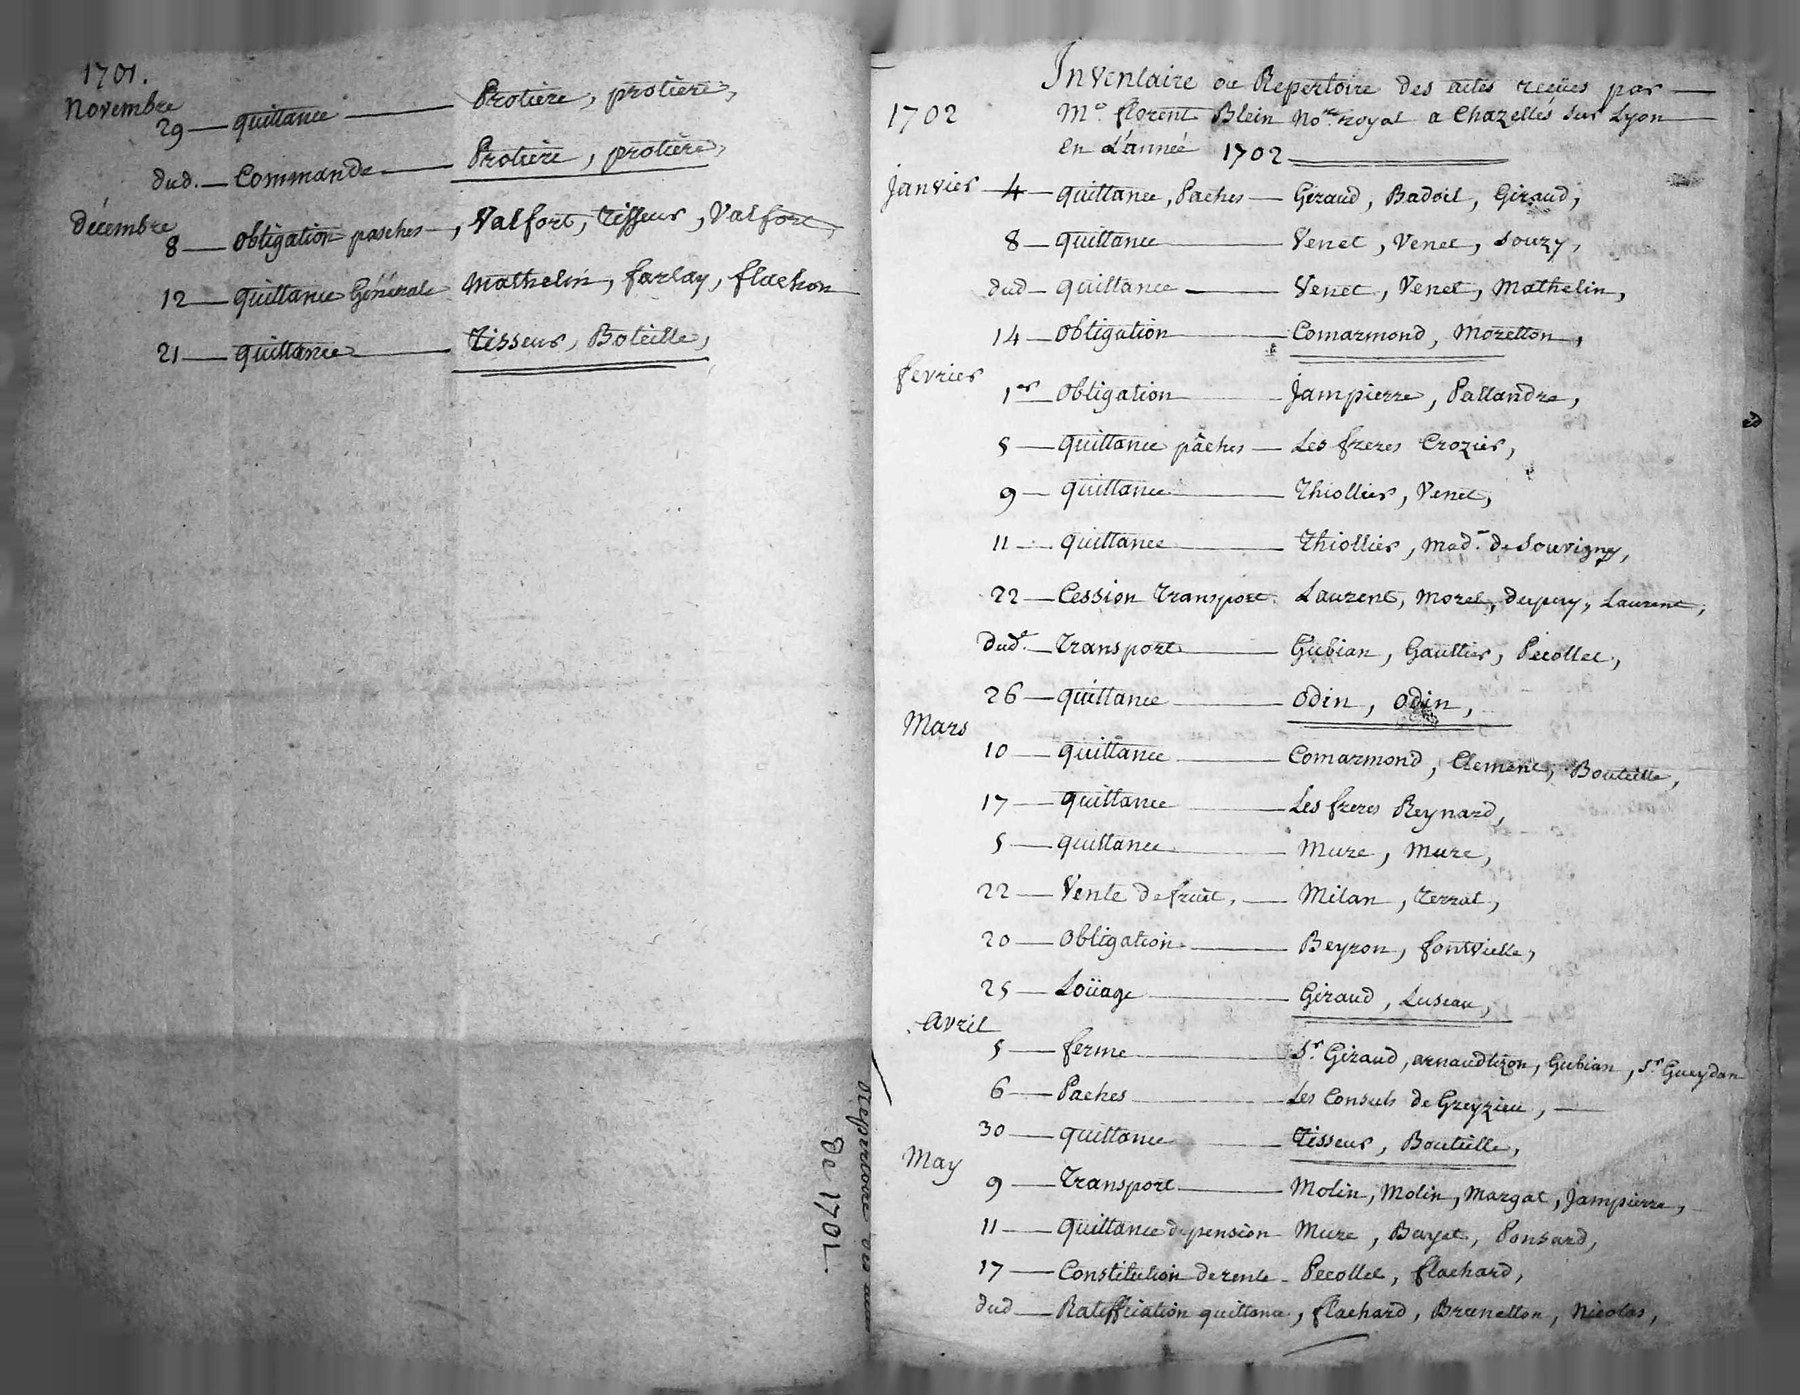 1701.
Novembre
29 — quittance — Protiere, protiere,
dud. — Commande — Protiere, protiere,
décembre
8 — obligation pasches —, Valfort, Tisseur, Valfort,
12 — quittance Générale Mathelin, farlay, flachon
21 — quittance — Tisseur, Boteille,
Repertoire des
De 1701.
Inventaire ou Repertoire des actes reçües par —
1702 Me. florent Blein Nore. Royal a Chazelles sur Lyon —
en L'année 1702
Janvier 4 — quittance, Paches — Giraud, Badoil, Giraud,
8 — quittance — Venet, Venet, Souzy,
dud — quittance — Venet, Venet, Mathelin,
14 — obligation — Comarmond, Morellon,
fevrier
1er — obligation — Jampierre, Pallandre,
5 — quittance pâches — Les freres Crozier,
9 — quittance — Thiollier, Venet,
11 — quittance — Thiollier, Made. de Souvigny,
22 — Cession Transport. Laurent, Morel, dupuy, Laurent,
dud. — Transport — Gubian, Gaultier, Pecollet,
26 — quittance — Odin, Odin,
Mars
10 — quittance — Comarmond, Clement, Bouteille,
17 — quittance — Les freres Reynard,
5 — quittance — Mure, Mure,
22 — Vente de fruit, — Milan, Terrat,
20 — obligation — Beyron, fontvielle,
25 — Loüage — Giraud, Luseau,
Avril
5 — ferme — Sr. Giraud, arnaudtizon, Gubian, Sr. Gueydan
6 — Paches — Les Consuls de Greyzieu, —
30 — quittance — Tisseur, Bouteille,
May
9 — Transport — Molin, Molin, Margat, Jampierre,
11 — quittance de pension Mure, Buyet, Ponsard,
17 — Constitution de rente — Pecollet, flachard,
dud — Ratiffication quittance, flachard, Brunetton, Nicolas,